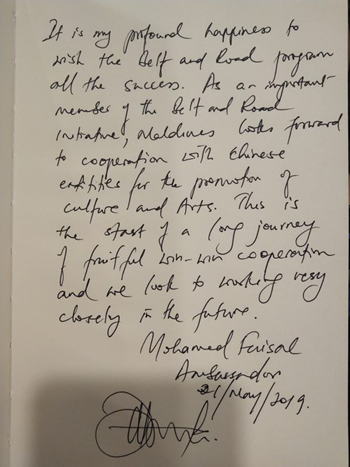 It is my profound happiness to
wish the Belt and Road program
all the success. As an important
member of the Belt and Road
initiative, Maldives looks forward
to cooperation with Chinese
entities for the promotion of
culture and Arts. This is
the start of a long journey
of fruitful win-win cooperation
and we look to working very
closely in the future.
Mohamed Faisal
Ambassador
21/May/2019.